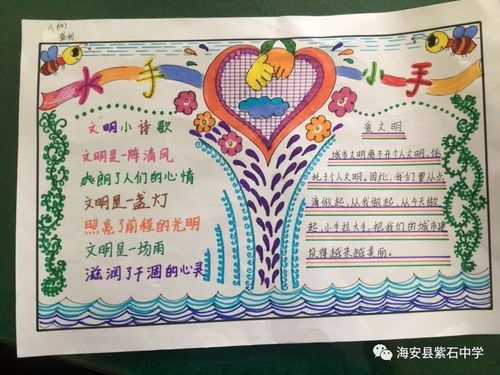 八(四)
大手 小手
文明小诗歌
文明是一阵清风
爽朗了人们的心情
文明是一盏灯
照亮了前程的光明
文明是一场雨
滋润了干涸的心灵
文明
城市文明离不开个人文明,依
托于个人文明。因此,我们要从点
滴做起,从我做起,从今天做
起,小手拉大手,把我们的城市建
设得越来越美丽。
海安县紫石中学